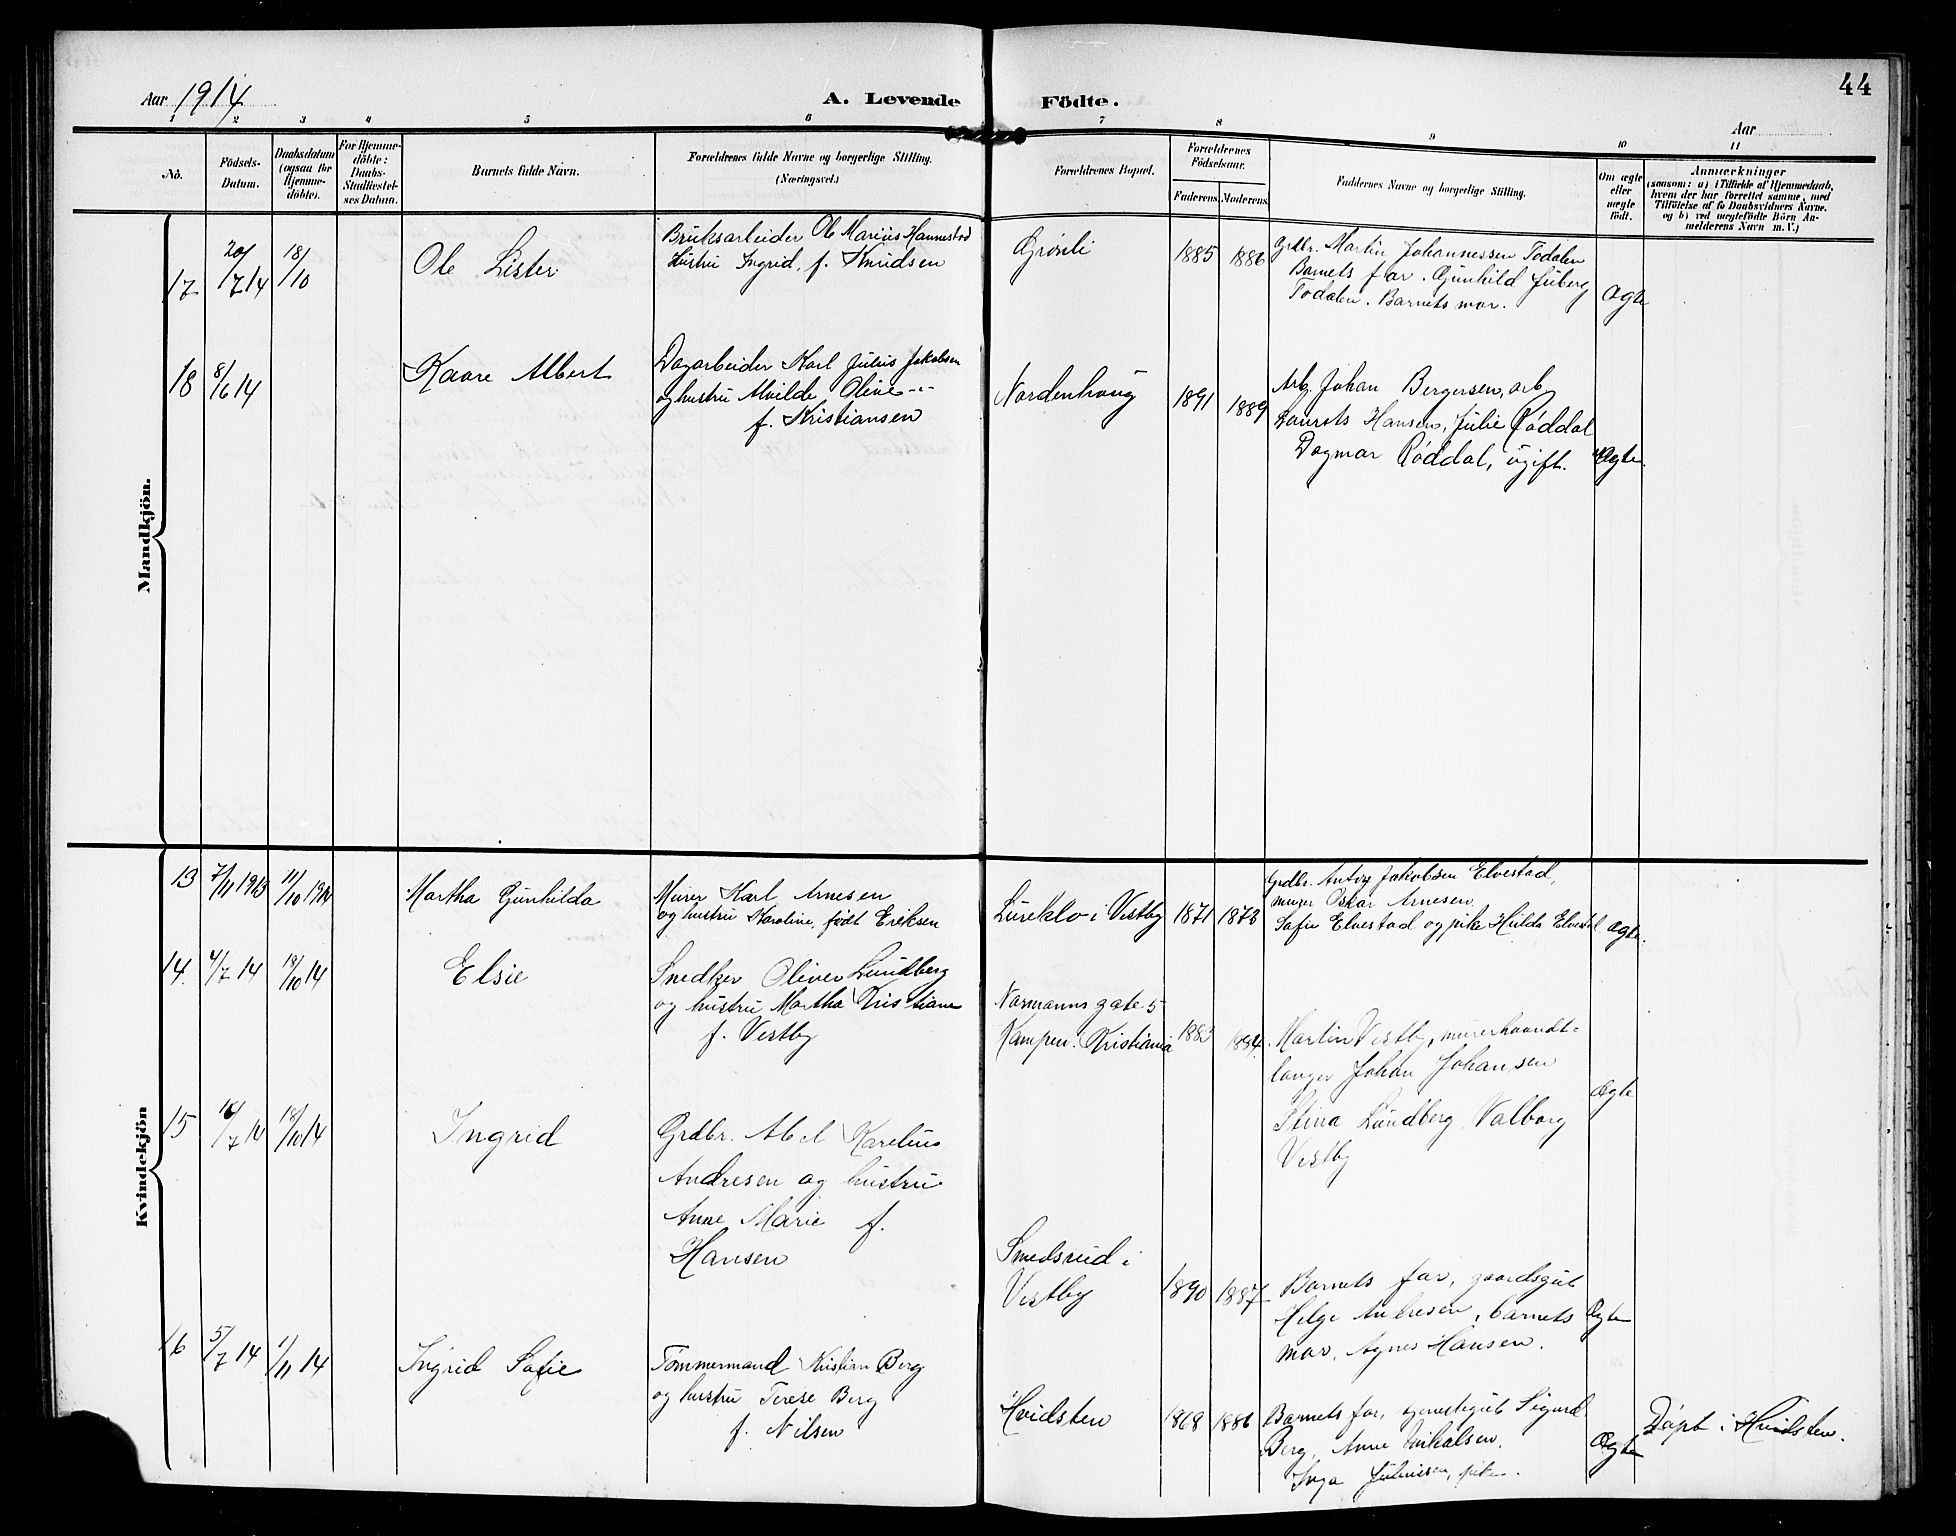 44
Aar 1914
A. Levende Födte.
Aar
1 2 3 4 5 6 7 8 9 10 11
No.
Födsels-
Datum.
Daabsdatum
(ogsaa for
Hjemme-
döbte).
For Hjemme-
döbte:
Daabs-
Stadfæstel-
ses Datum.
Barnets fulde Navn.
Forældrenes fulde Navne og borgerlige Stilling.
(Næringsvei.)
Forældrenes Bopæl.
Forældrenes
Födselsaar.
Faderens. Moderens.
Faddernes Navne og borgerlige Stilling.
Om ægte
eller
uægte
födt.
Anmærkninger
(saasom: a) i Tilfælde af Hjemmedaab,
hvem der har forrettet samme, med
Tilföielse af to Daabsvidners Navne,
og b) ved uægtefödte Börn An-
melderens Navn m. V.)
Mandkjön.
17
20/7 14
18/10
Ole Lister
Bruksarbeider Ole Marius Hannestad
Hustru Ingrid, f. Knudsen
Grønli
1885
1886
Grdbr. Martin Johannessen Todalen
Barnets far. Gunhild Juberg
Todalen. Barnets mor.
Ægte
18
8/6 14
Kaare Albert
Dagarbeider Karl Julius Jakobsen
og hustru Alvilde Oline
f. Kristiansen
Nordenhaug
1891
1889
Arb. Johan Bergersen, arb
Laurets Hansen, Julie Røddal
Dagmar Røddal, ugift.
Ægte.
Kvindekjön
13
7/11 1913
11/10 1914
Martha Gunhilda
Murer Karl Arnesen
og hustru Karoline, født Eriksen
Lureklo i Vestby
1871
1873
Grdbr. Anton Jakobsen Elvestad,
murer Oskar Arnesen
Safie Elvestad og pike Hulda Elvestad
Ægte.
14.
4/7 14
18/10 14
Elsie
Snedker Oliver Lundberg
og hustru Martha Kristiane
f. Vestby
Normanns gate 5
Kampen. Kristiania
1883
1884.
Martin Vestby, murerhaandt-
langer Johan Johansen
Stina Lundberg Valborg
Vestby
Ægte
15
/7 14
18/10 14
Ingrid
Grdbr. Abel Karelius
Andresen og hustru
Anne Marie f.
Hansen
Smedsrud i
Vestby
1890
1887
Barnets far, gaardsgut
Helge Andresen, barnets
mor, Agnes Hansen.
Ægte
16
5/7 14
1/11 14
Ingrid Safie
Tømmermand Kristian Berg
og hustru Terese Berg
f. Nilsen
Hvidsten
1868
1886
Barnets far, tjenestegut Sigurd
Berg, Anne Mikalsen,
Inga Juliussen, pike.
Ægte
Døpt i Hvidsten.